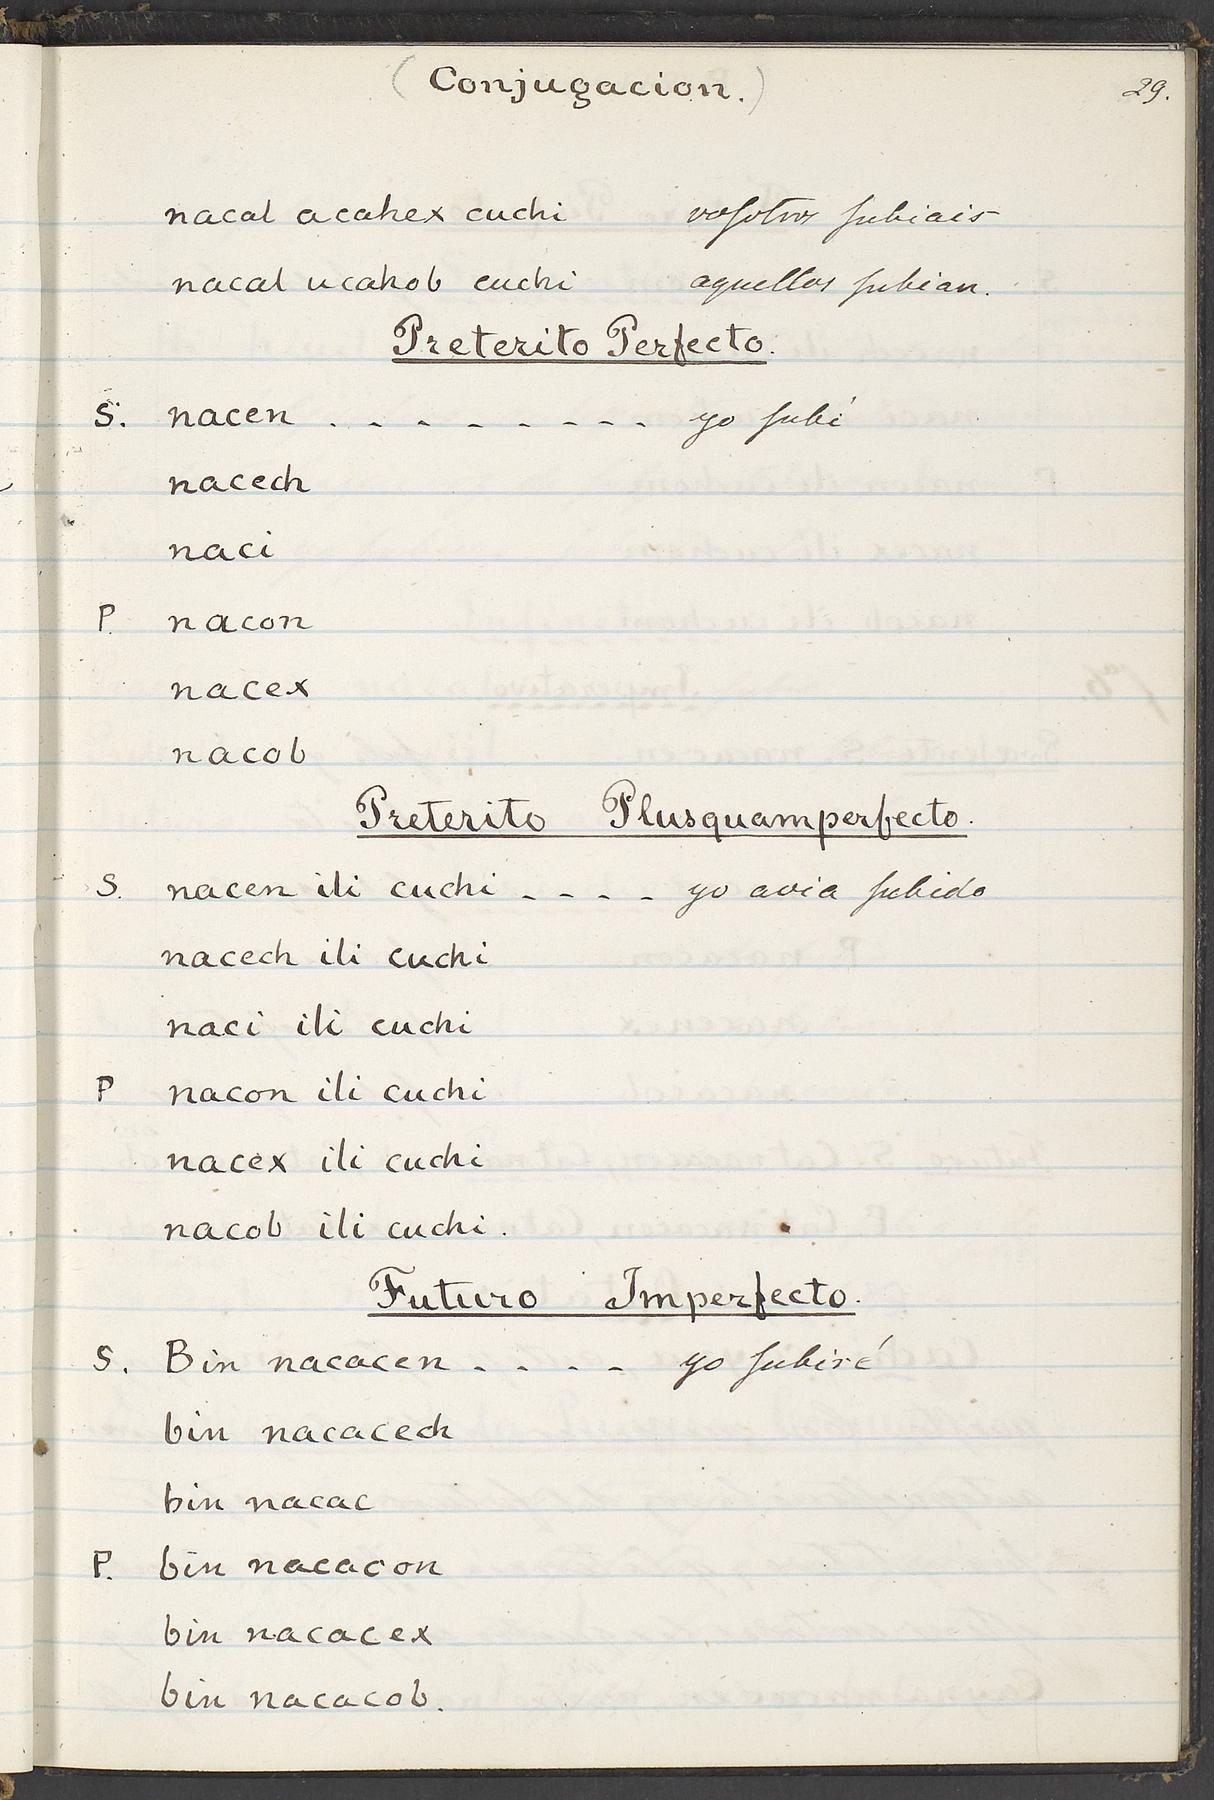 (Conjugacion.)
29.
nacal acahex cuchi vosotros subiais
nacal ucahob cuchi aquellos subian.
Preterito Perfecto.
S. nacen . - - - - - - - yo subi
nacech
naci
P. nacon
nacex
nacob
Preterito Plusquamperfecto.
S. nacen ili cuchi - - - - yo avia subido
nacech ili cuchi
naci ili cuchi
P nacon ili cuchi
nacex ili cuchi
nacob ili cuchi.
Futuro Imperfecto.
S. Bin nacacen - - - - yo subiré
bin nacacech
bin nacac
P. bin nacacon
bin nacacex
bin nacacob.